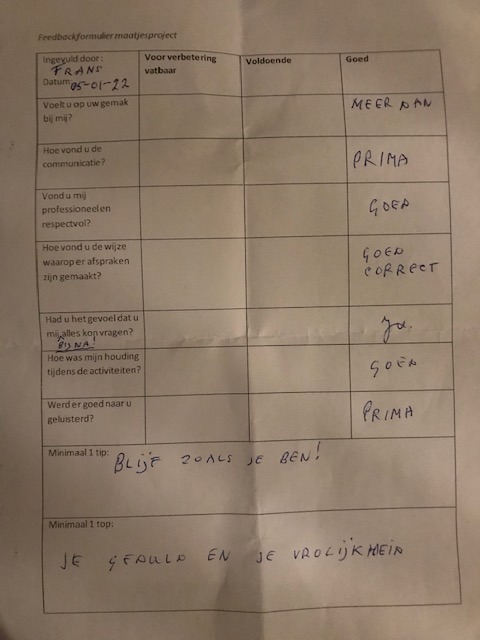 Feedbackformulier maatjesproject
Ingevuld door: Voor verbetering Voldoende Goed
FRANS vatbaar
Datum 05-01-22
Voelt u op uw gemak MEER DAN
bij mij?
Hoe vond u de
communicatie? PRIMA
Vond u mij
professioneel en GOED
respectvol?
Hoe vond u de wijze GOED
waarop er afspraken CORRECT
zijn gemaakt?
Had u het gevoel dat u
mij alles kon vragen? Ja.
BIJNA!
Hoe was mijn houding GOED
tijdens de activiteiten?
Werd er goed naar u PRIMA
geluisterd?
Minimaal 1 tip: BLIJF ZOALS JE BEN!
Minimaal 1 top:
JE GEDULD EN JE VROLIJKHEID